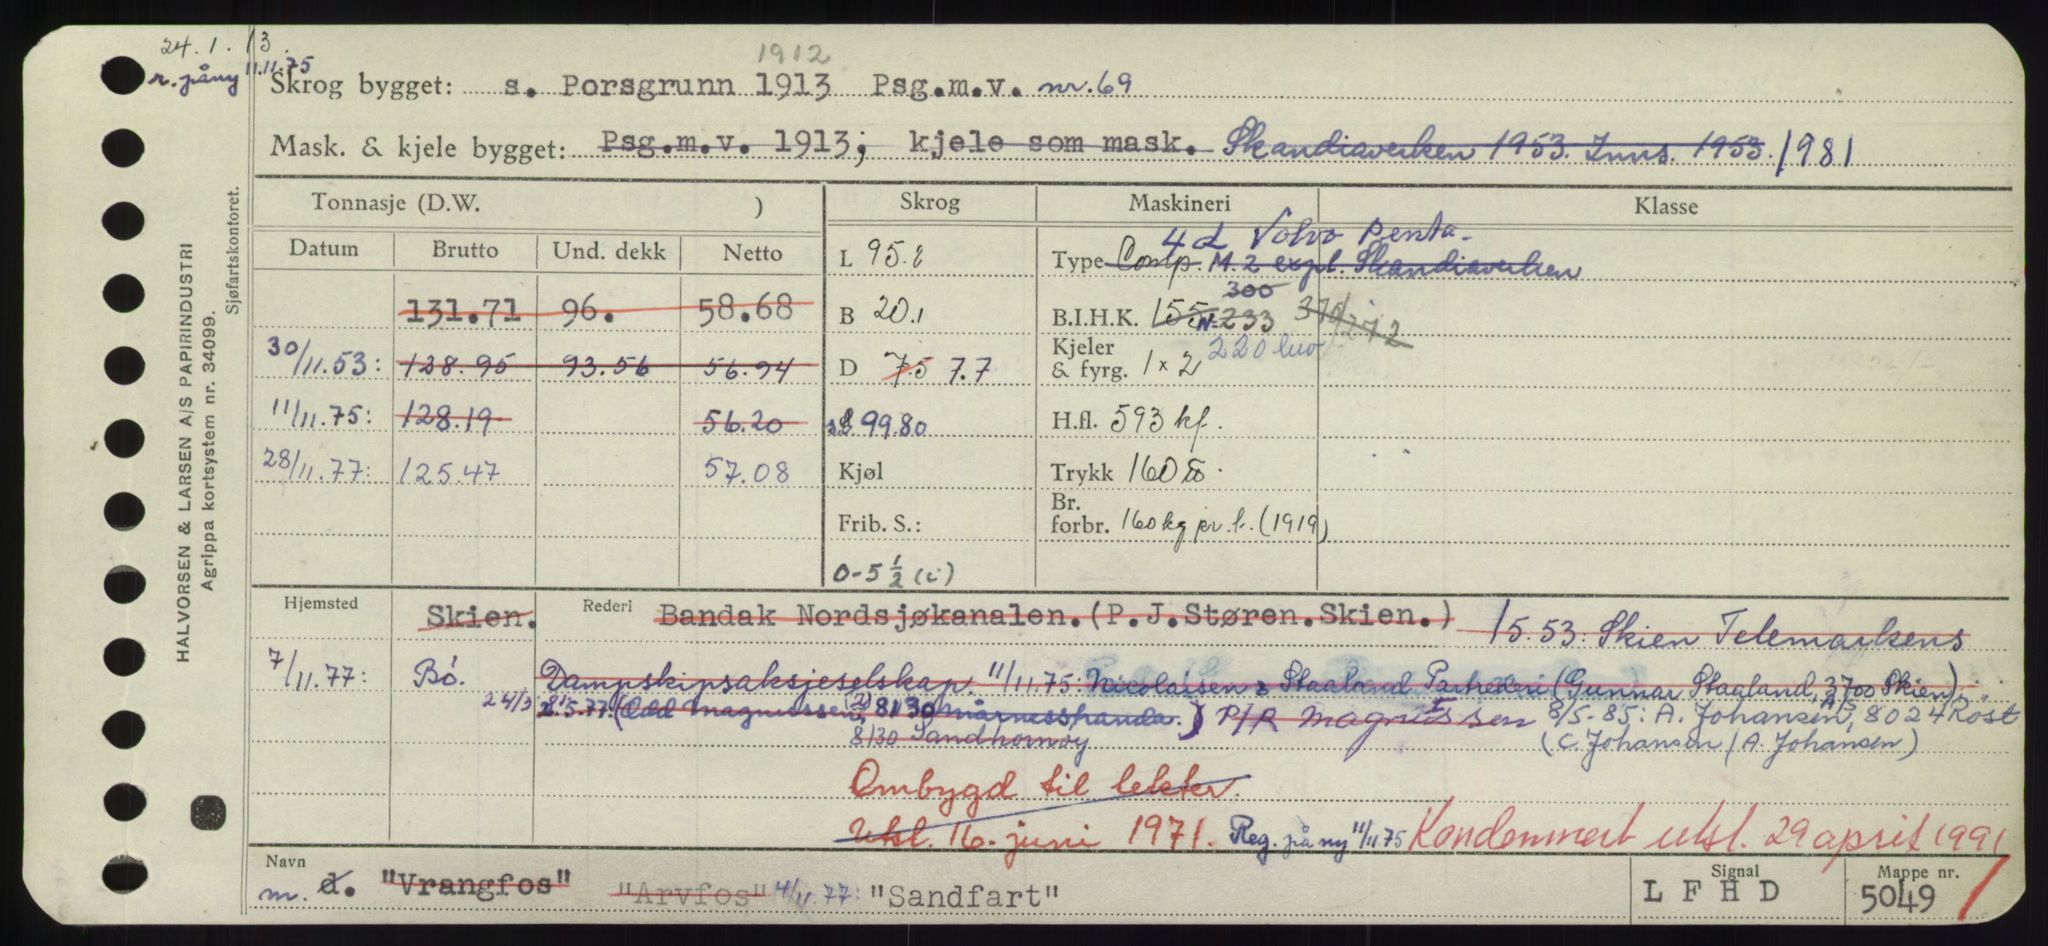 24.1.13.
r. påny 11.11.75
1912
Skrog bygget: s. Porsgrunn 1913 Psg.m.v. nr. 69
Mask. & kjele bygget: Psg.m.v. 1913; kjele som mask. Skandiaverken 1953. Inns. 1953. 1981
HALVORSEN & LARSEN A/S PAPIRINDUSTRI
Agrippa kortsystem nr. 34099.
Sjøfartskontoret.
Tonnasje (D.W. ) Skrog Maskineri Klasse
Datum Brutto Und. dekk Netto
4 d Volvo Penta.
L 95.2 Type Comp. M. 2 cyl. Skandiaverken
131.71 96. 58.68
300
B 20.1 B.I.H.K. 155 N-233 370/272
220 hw
30/11.53: 128.95 93.56 56.94
D 7.5 7.7 Kjeler & fyrg. 1 x 2
11/11.75: 128.19 56.20
99.80 H.fl. 593 kf.
28/11.77: 125.47 57.08
Kjøl Trykk 160
Frib. S.: Br. forbr. 160 kg pr. t. (1919)
0-5 1/2 (i)
Hjemsted Skien. Rederi Bandak Nordsjøkanalen. (P.J.Støren.Skien.) 1/5.53: Skien Telemarkens
7/11.77: Bó. Dampskipsaksjeselskap. 11/11.75: Nicolaisen & Staaland Partrederi (Gunnar Staaland, 3700 Skien).
24/3 81 5.77: (Odd Magnussen, 8130 Mårnesstranda.) P/R Magnussen 8/5-85: A. Johansen A/S, 8024 Röst
8130 Sandhornøy (C. Johansen / A. Johansen)
Ombygd til lekter.
Utsl. 16. juni 1971. Reg. på ny 11/11.75 Kondemnert utsl. 29 april 1991
Navn Signal Mappe nr.
m. d. "Vrangfos" "Arvfos" 4/11.77: "Sandfart" L F H D 5049